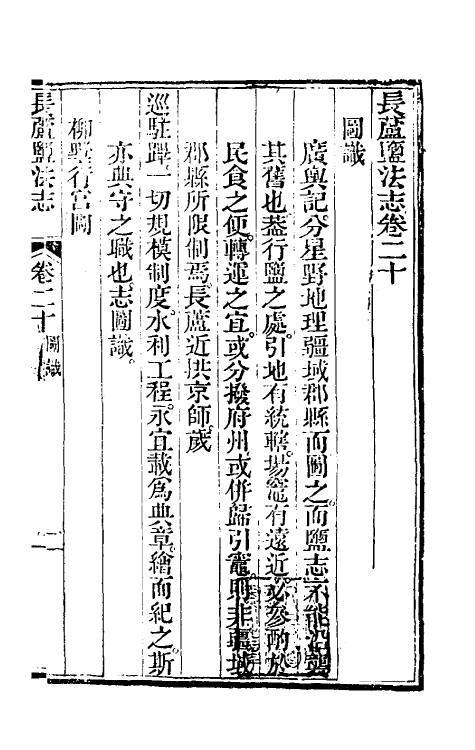 長蘆鹽法志卷二十
圖識
廣輿記分星野地理疆域郡縣而圖之而鹽志不能沿襲
其舊也蓋行鹽之處引地有統轄場竈有遠近必參酌於
民食之便轉運之宜或分撥府州或併歸引竈則非疆域
郡縣所限制焉長蘆近拱京師歲
巡駐蹕一切規模制度水利工程永宜載為典章繪而紀之斯
亦典守之職也志圖識
柳墅行宮圖
長蘆鹽法志 卷二十 圖識 一